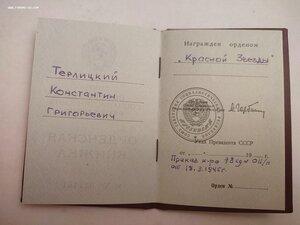 Терлицкий
Константин
Григорьевич
Награжден орденом
"Красной Звезды"
Указ Президента СССР
от 19 г.
Приказ к-ра
от 18.3.1945г.
Орден №